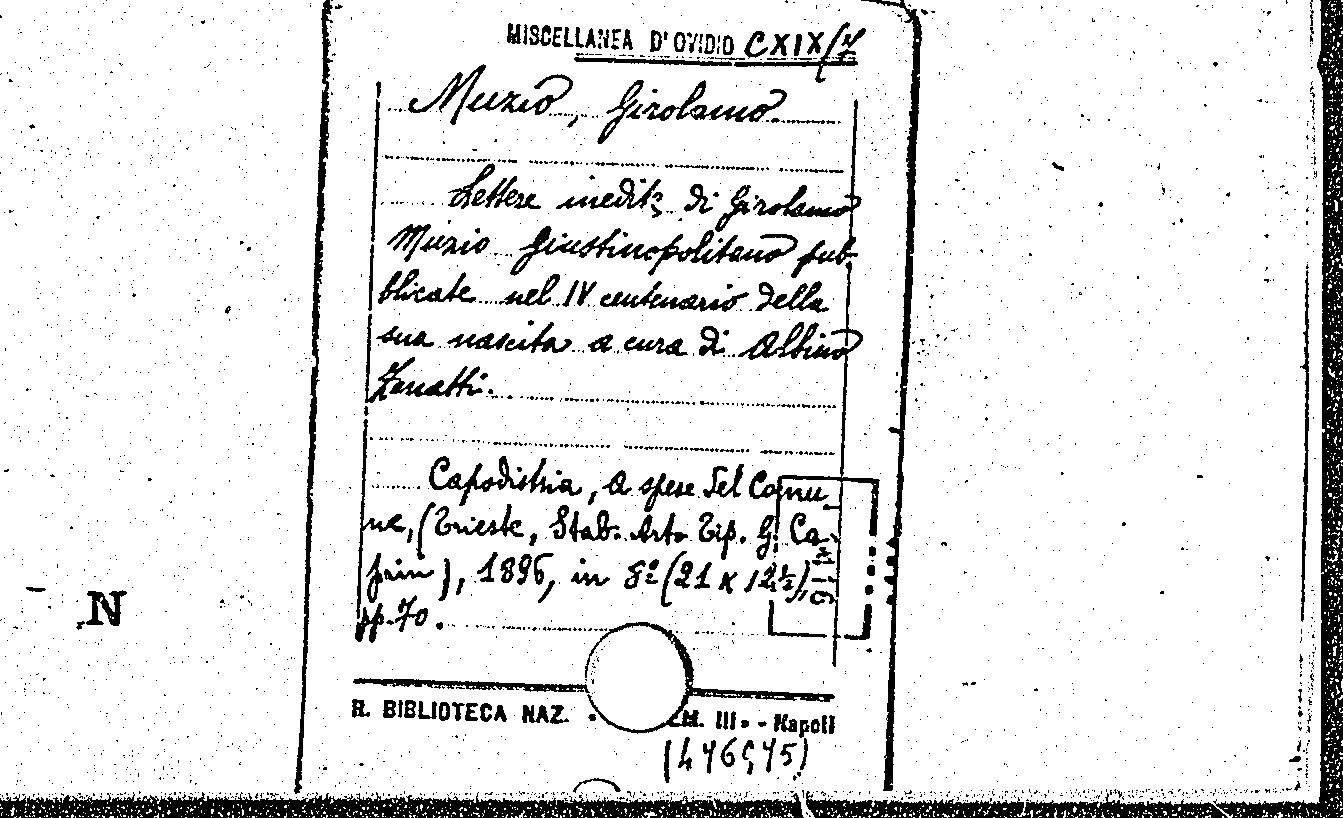 MISCELLANEA D'OVIDIO CXIX/
Muzio, Girolamo.
Lettere inedite di Girolamo
Muzio Giustinopolitano pub-
blicate nel IV centenario della
sua nascita a cura di Albino
Zenatti.
Capodistria, a spese del Comu
ne, (Trieste, Stab. Art. Tip. G. Ca-
prin), 1896, in 8º (21 x 12½),
pp. 70.
N
R. BIBLIOTECA NAZ. EM. III. - Napoli